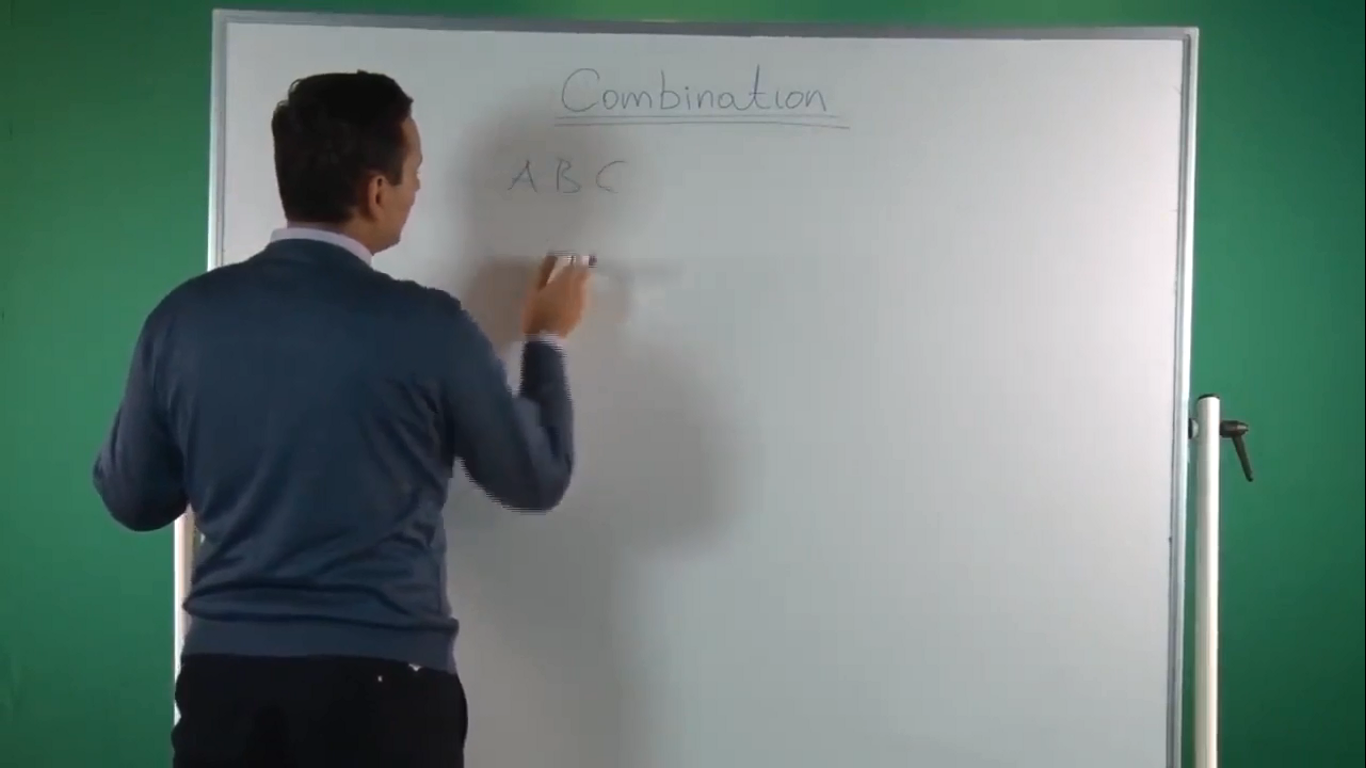 Combination
A B C